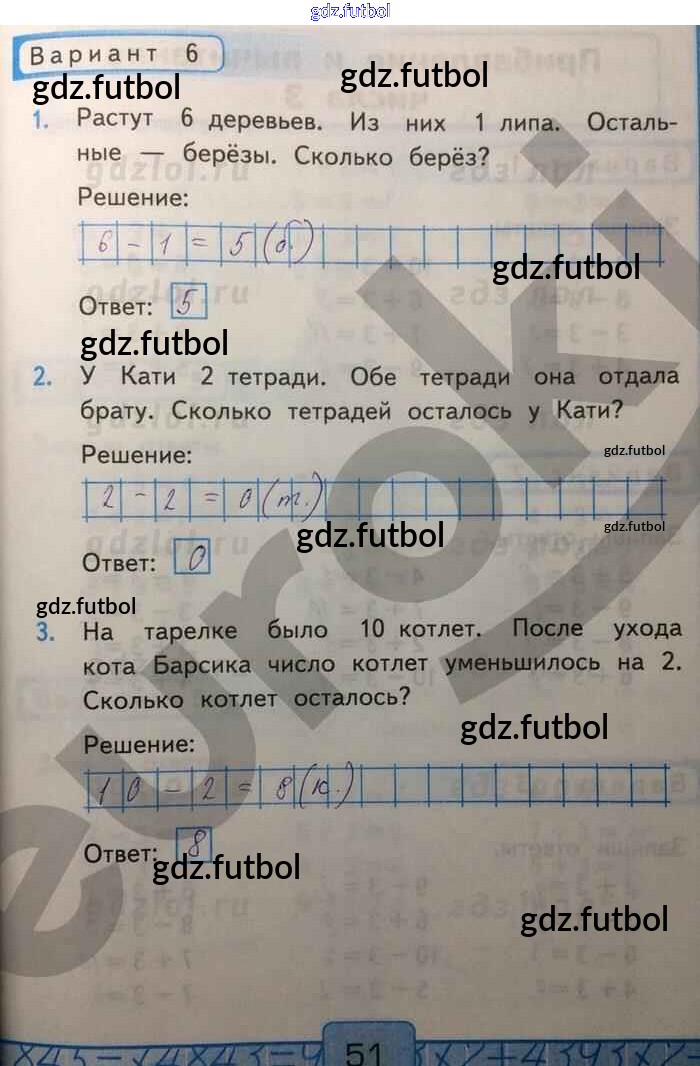 gdz.futbol
Вариант 6
gdz.futbol
gdz.futbol
1. Растут 6 деревьев. Из них 1 липа. Осталь-
ные — берёзы. Сколько берёз?
Решение:
6 - 1 = 5 (б.)
gdz.futbol
Ответ: 5
gdz.futbol
2. У Кати 2 тетради. Обе тетради она отдала
брату. Сколько тетрадей осталось у Кати?
Решение:
gdz.futbol
2 - 2 = 0 (т.)
gdz.futbol
gdz.futbol
Ответ: 0
gdz.futbol
3. На тарелке было 10 котлет. После ухода
кота Барсика число котлет уменьшилось на 2.
Сколько котлет осталось?
gdz.futbol
Решение:
10 - 2 = 8 (к.)
Ответ: 8
gdz.futbol
gdz.futbol
euroki
51